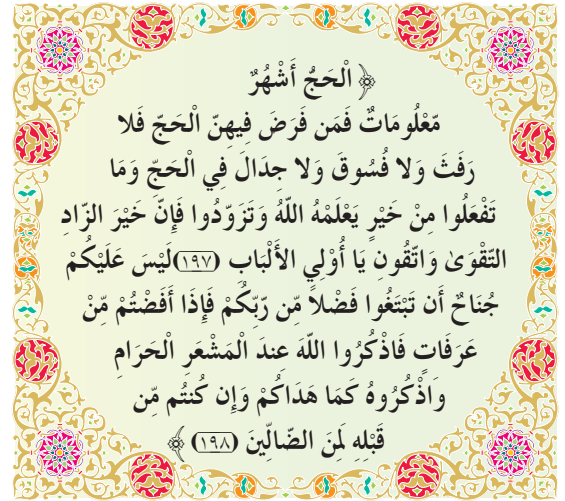 ﴿ الْحَجُّ أَشْهُرٌ
مَّعْلُومَاتٌ فَمَن فَرَضَ فِيهِنَّ الْحَجَّ فَلا
رَفَثَ وَلا فُسُوقَ وَلا جِدَالَ فِي الْحَجِّ وَمَا
تَفْعَلُوا مِنْ خَيْرٍ يَعْلَمْهُ اللّهُ وَتَزَوَّدُوا فَإِنَّ خَيْرَ الزَّادِ
التَّقْوَىٰ وَاتَّقُونِ يَا أُوْلِي الأَلْبَابِ (١٩٧)لَيْسَ عَلَيْكُمْ
جُنَاحٌ أَن تَبْتَغُوا فَضْلاً مِّن رَّبِّكُمْ فَإِذَا أَفَضْتُمْ مِّنْ
عَرَفَاتٍ فَاذْكُرُوا اللّهَ عِندَ الْمَشْعَرِ الْحَرَامِ
وَاذْكُرُوهُ كَمَا هَدَاكُمْ وَإِن كُنتُم مِّن
قَبْلِهِ لَمِنَ الضَّالِّينَ (١٩٨) ﴾